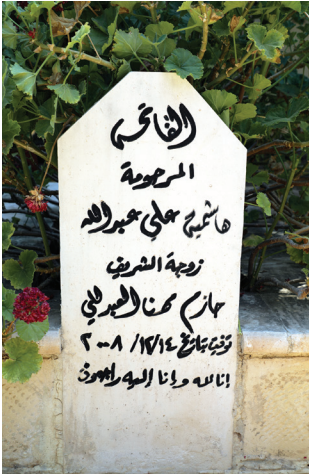 الفاتحة
المرحومة
هاشمية علي عبدالله
زوجة الشريف
حازم مهنا العبدللي
توفيت بتاريخ ١٤/١٢/٢٠٠٨
إنا لله وإنا إليه راجعون